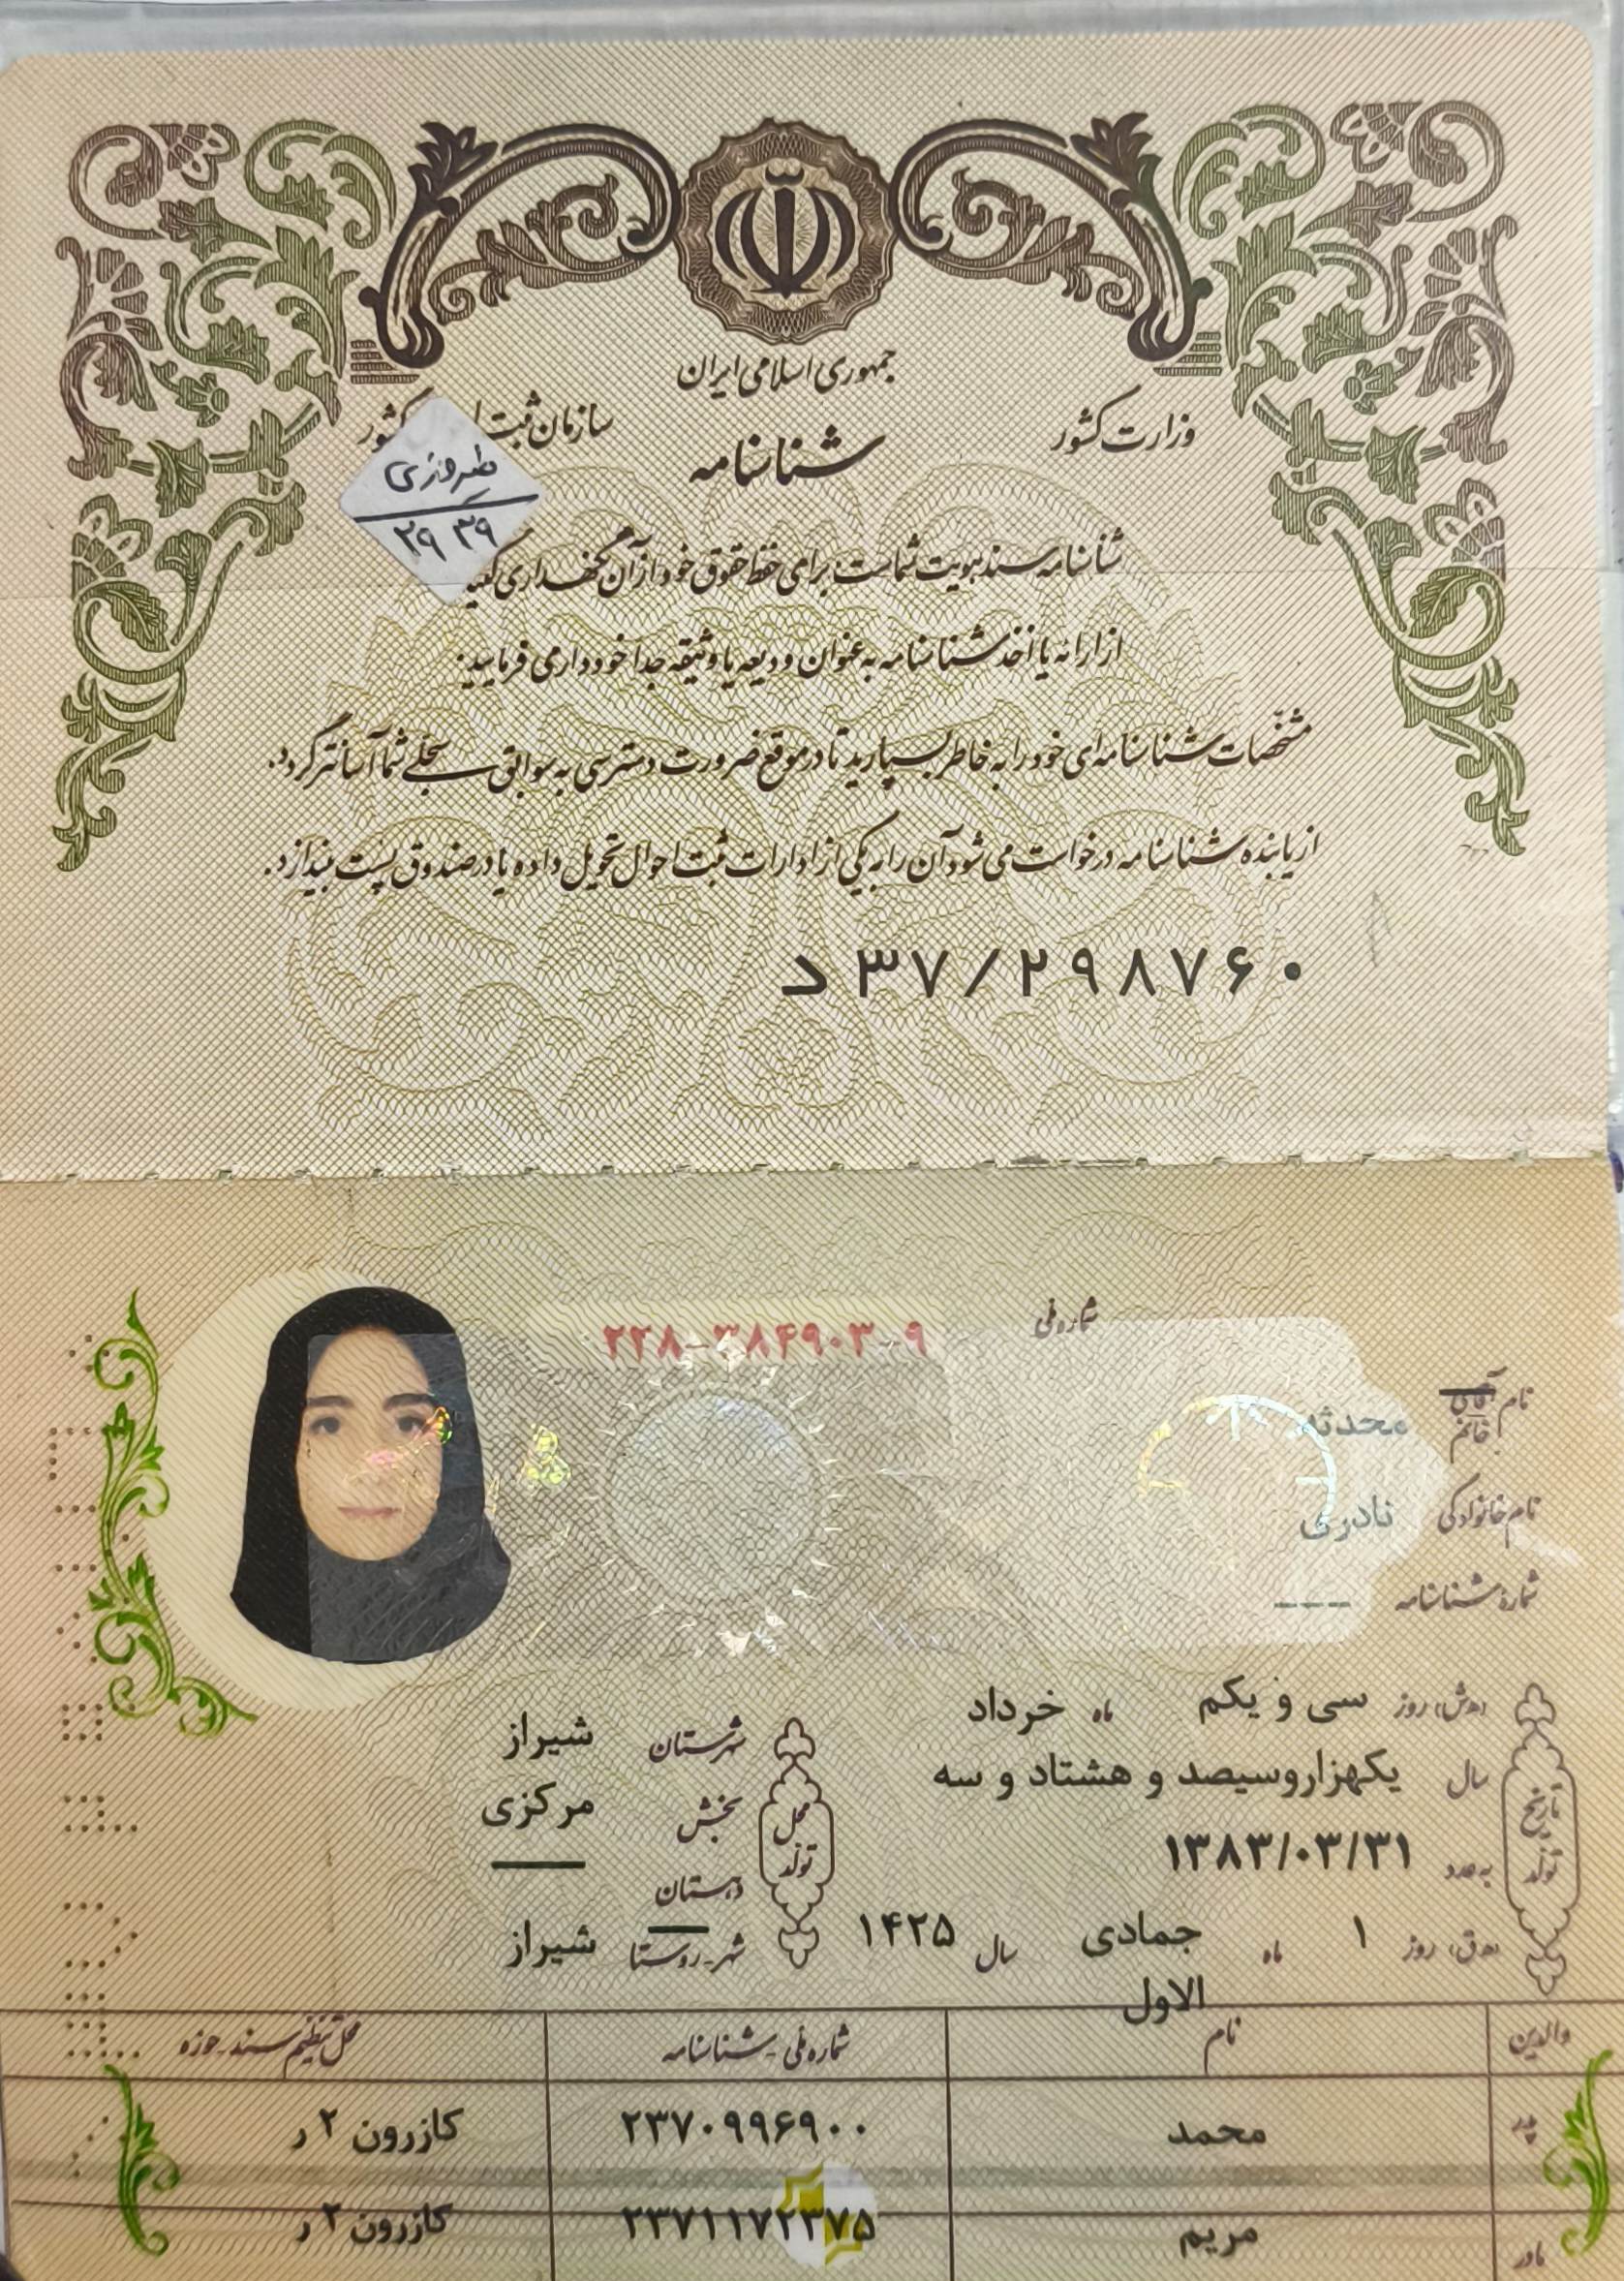 جمهوری اسلامی ایران
وزارت کشور
سازمان ثبت کشور
شناسنامه
۲۹ ۳۹
شناسنامه سند هویت شماست برای حفظ حقوق خود از آن نگهداری کنید
از ارائه یا اخذ شناسنامه به عنوان ودیعه یا وثیقه جدا خودداری فرمایید.
مشخصات شناسنامه‌ای خود را به خاطر بسپارید تا در موقع ضرورت دسترسی به سوابق سجلی شما آسانتر گردد.
از یابنده شناسنامه درخواست می‌شود آن را به یکی از ادارات ثبت احوال تحویل داده یا در صندوق پست بیندازد.
د ۳۷/۲۹۸۷۶۰
شماره ملی ۲۲۸-۳۸۴۹۰۳-۹
نام آقای خانم محدثه
نام خانوادگی نادری
شماره شناسنامه ---
تاریخ تولد
(ه‍.ش) روز سی و یکم ماه خرداد
سال یکهزاروسیصد و هشتاد و سه
به عدد ۱۳۸۳/۰۳/۳۱
(ه‍.ق) روز ۱ ماه جمادی الاول سال ۱۴۲۵
محل تولد
شهرستان شیراز
بخش مرکزی
دهستان
شهر-روستا شیراز
والدین نام شماره ملی-شناسنامه محل تنظیم سند-حوزه
پدر محمد ۲۳۷۰۹۹۶۹۰۰ کازرون ۲ ر
مادر مریم ۲۳۷۱۱۷۲۳۷۵ کازرون ۲ ر